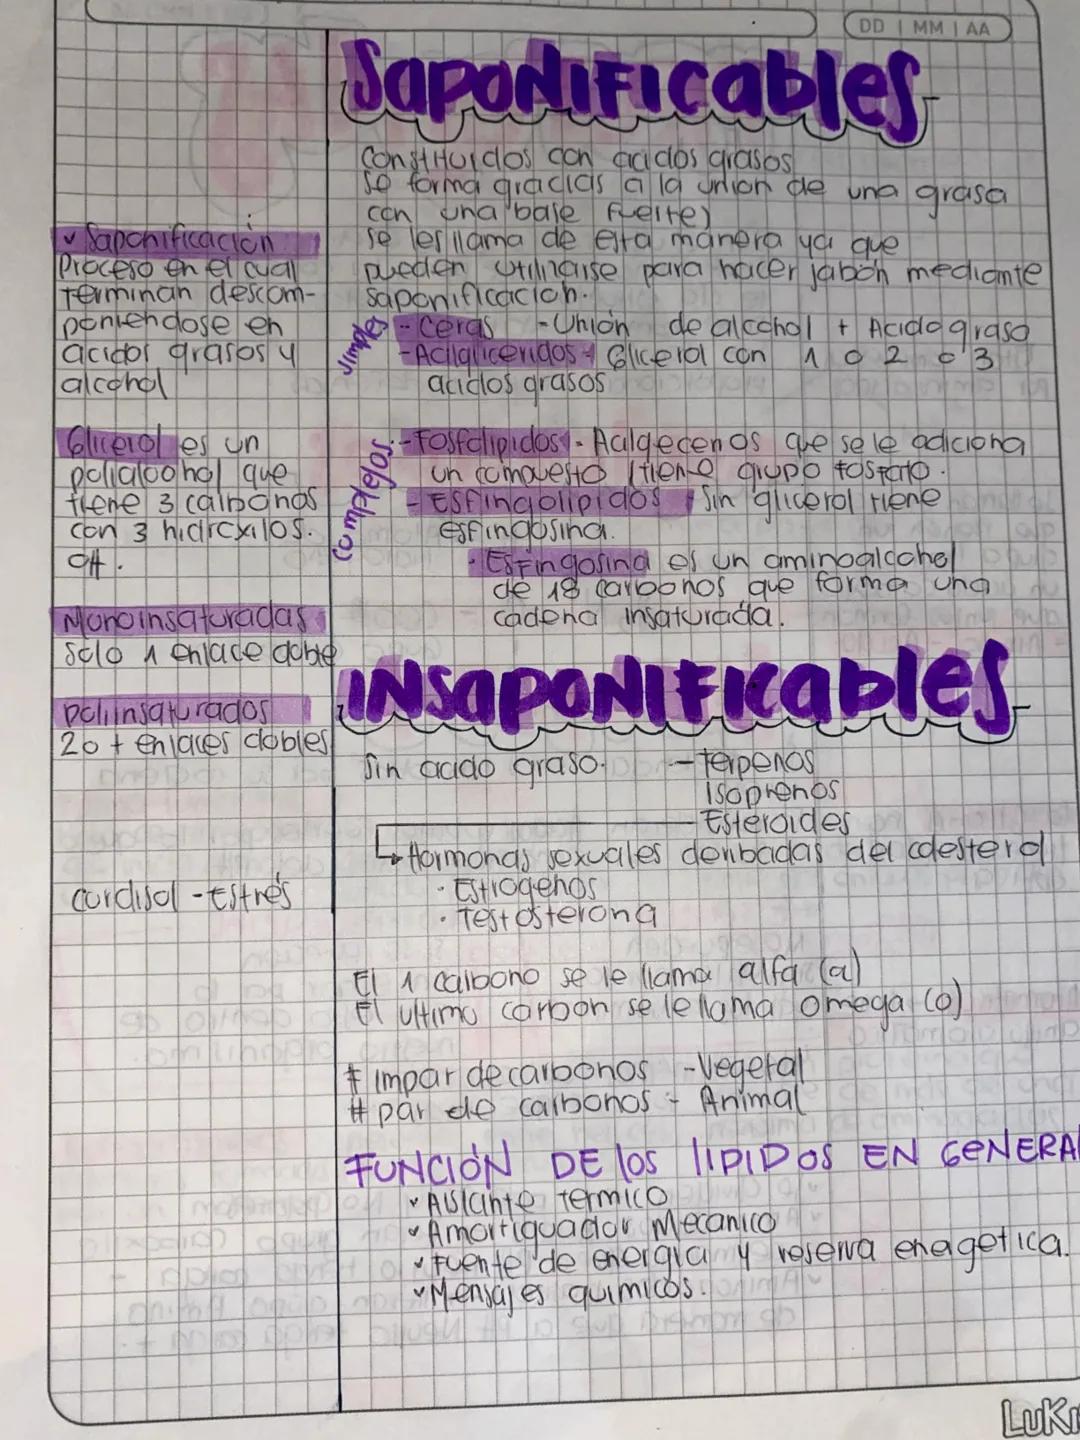 DD | MM | AA
Saponificables
Constituidos con acidos grasos
Se forma gracias a la union de una grasa
con una base fuerte)
se les llama de esta manera ya que
pueden utilizarse para hacer jabón mediante
saponificacion.
simples
- Ceras - Unión de alcohol + Acido graso
- Acilgliceridos - Glicerol con 1 o 2 o 3
acidos grasos
complejos
- Fosfolipidos - que se le adiciona
un compuesto tiene grupo fosfato.
- Esfingolipidos sin glicerol tiene
esfingosina.
· Esfingosina es un aminoalcohol
de 18 carbonos que forma una
cadena insaturada.
✓ Saponificación
Proceso en el cual
terminan descom-
poniendose en
acidos grasos y
alcohol
Glicerol es un
polialcohol que
tiene 3 carbonos
con 3 hidroxilos.
OH.
Monoinsaturadas
Solo 1 enlace doble
poliinsaturados
2 o + enlaces dobles
cordisol - Estrés
INsaponificables
Sin acido graso. - terpenos
Isoprenos
Esteroides
Hormonas sexuales deribadas del colesterol
· Estrogenos
· Testosterona
El 1 carbono se le llama alfa (a)
El ultimo carbon se le llama omega (o)
# impar de carbonos - Vegetal
# par de carbonos - Animal
FUNCIÓN DE los lIPIDOS EN GENERAL
✓ Aislante termico
✓ Amortiguador Mecanico
✓ Fuente de energia y reserva enegetica.
✓ Mensajes quimicos.